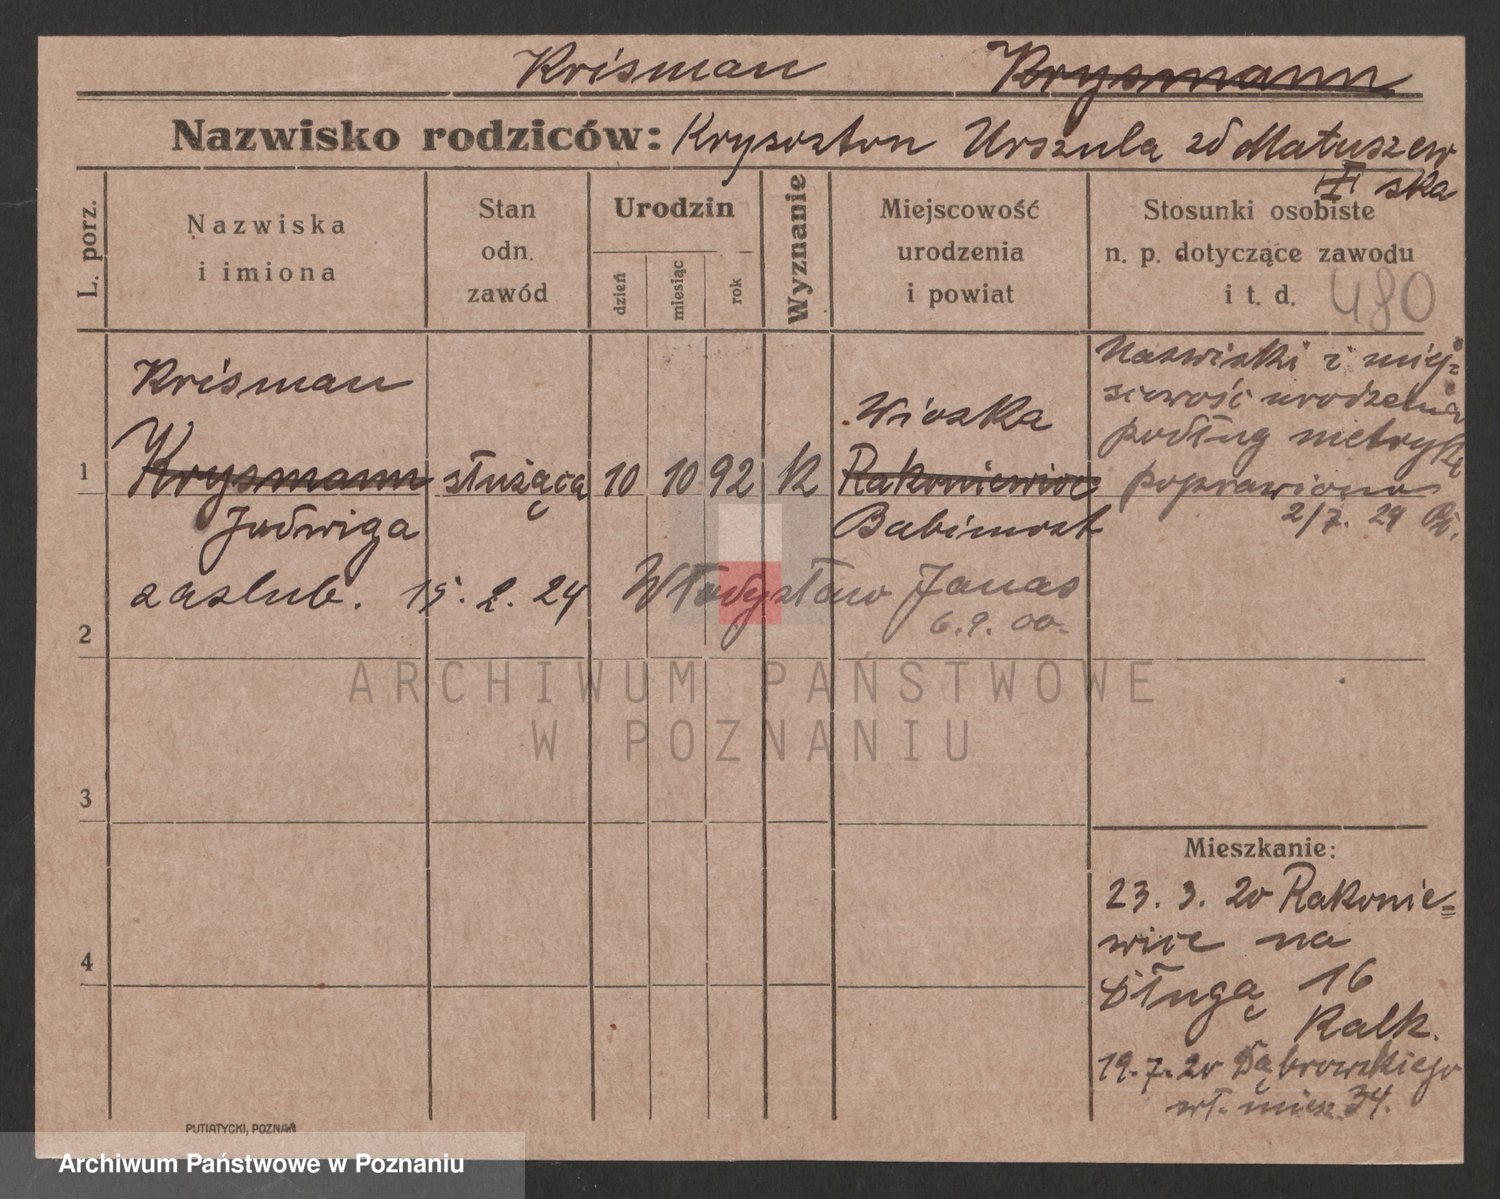 Krisman Krysmann
Nazwisko rodziców: Krysostom Urszula zd Matuszew
ska
L. porz.
Nazwiska
i imiona
Stan
odn.
zawód
Urodzin
dzień
miesiąc
rok
Wyznanie
Miejscowość
urodzenia
i powiat
Stosunki osobiste
n. p. dotyczące zawodu
i t. d.
480
Krisman
1 Krysmann służąca 10 10 92 K
Jadwiga
Wioska
Rakoniewice
Babimost
Nazwiski i miej=
scowość urodzenia
podług metryki
poprawiono
2/7. 29
zaslub. 15. 2. 24 Władysław Janas
6.9.00.
2
ARCHIWUM PAŃSTWOWE
W POZNANIU
3
4
Mieszkanie:
23. 3. 20 Rakonie=
wice na
Długą 16
Ralk.
19.7.20 Dąbrowskiego
wł. miesz 34.
PUTIATYCKI, POZNAŃ
Archiwum Państwowe w Poznaniu